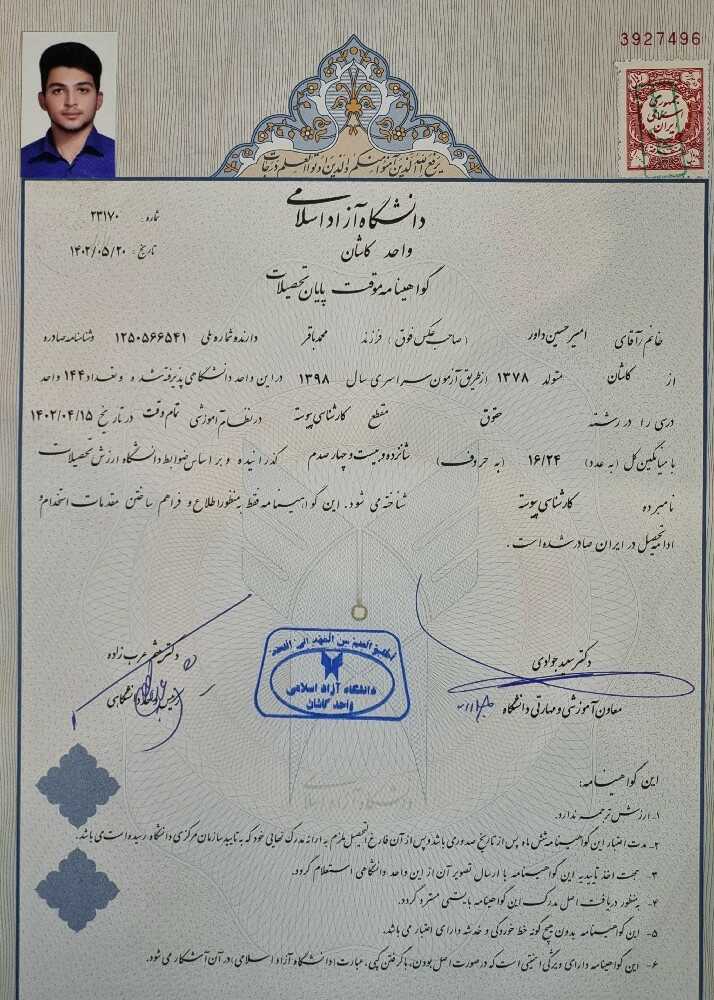 3927496
جمهوری
اسلامی
ایران
یرفع الله الذین آمنوا منکم والذین اوتوا العلم درجات
دانشگاه آزاد اسلامی
شماره: ۲۳۱۷۰
واحد کاشان
تاریخ: ۱۴۰۲/۰۵/۲۰
گواهینامه موقت پایان تحصیلات
خانم/آقای امیرحسین داور (صاحب عکس فوق) فرزند محمدباقر دارنده شماره ملی ۱۲۵۰۵۶۶۵۴۱ و شناسنامه صادره
از کاشان متولد ۱۳۷۸ از طریق آزمون سراسری سال ۱۳۹۸ در این واحد دانشگاهی پذیرفته شد و تعداد ۱۴۴ واحد
درسی را در رشته حقوق مقطع کارشناسی پیوسته در نظام آموزشی تمام وقت در تاریخ ۱۴۰۲/۰۴/۱۵
با میانگین کل (به عدد) ۱۶/۲۴ (به حروف) شانزده و بیست و چهار صدم گذرانیده و بر اساس ضوابط دانشگاه ارزش تحصیلات
نامبرده کارشناسی پیوسته شناخته می شود. این گواهینامه فقط به منظور اطلاع و فراهم ساختن مقدمات استخدام و
ادامه تحصیل در ایران صادر شده است.
دکتر عرب زاده
دکتر سعید جوادی
رئیس واحد دانشگاهی
معاون آموزشی و مهارتی دانشگاه
اطلبوا العلم من المهد الی اللحد
دانشگاه آزاد اسلامی
واحد کاشان
دانشگاه آزاد اسلامی
این گواهینامه:
۱- ارزش ترجمه ندارد.
۲- مدت اعتبار این گواهینامه شش ماه پس از تاریخ صدور می باشد و پس از آن فارغ التحصیل ملزم به ارائه مدرک نهایی خود که به تایید سازمان مرکزی دانشگاه رسیده است می باشد.
۳- جهت اخذ تاییدیه این گواهینامه با ارسال تصویر آن از این واحد دانشگاهی استعلام گردد.
۴- به منظور دریافت اصل مدرک این گواهینامه بایستی مسترد گردد.
۵- این گواهینامه بدون هیچ گونه خط خوردگی و خدشه دارای اعتبار می باشد.
۶- این گواهینامه دارای ویژگی امنیتی است که در صورت اصل بودن، با گرفتن کپی، عبارت (دانشگاه آزاد اسلامی) در آن آشکار می شود.